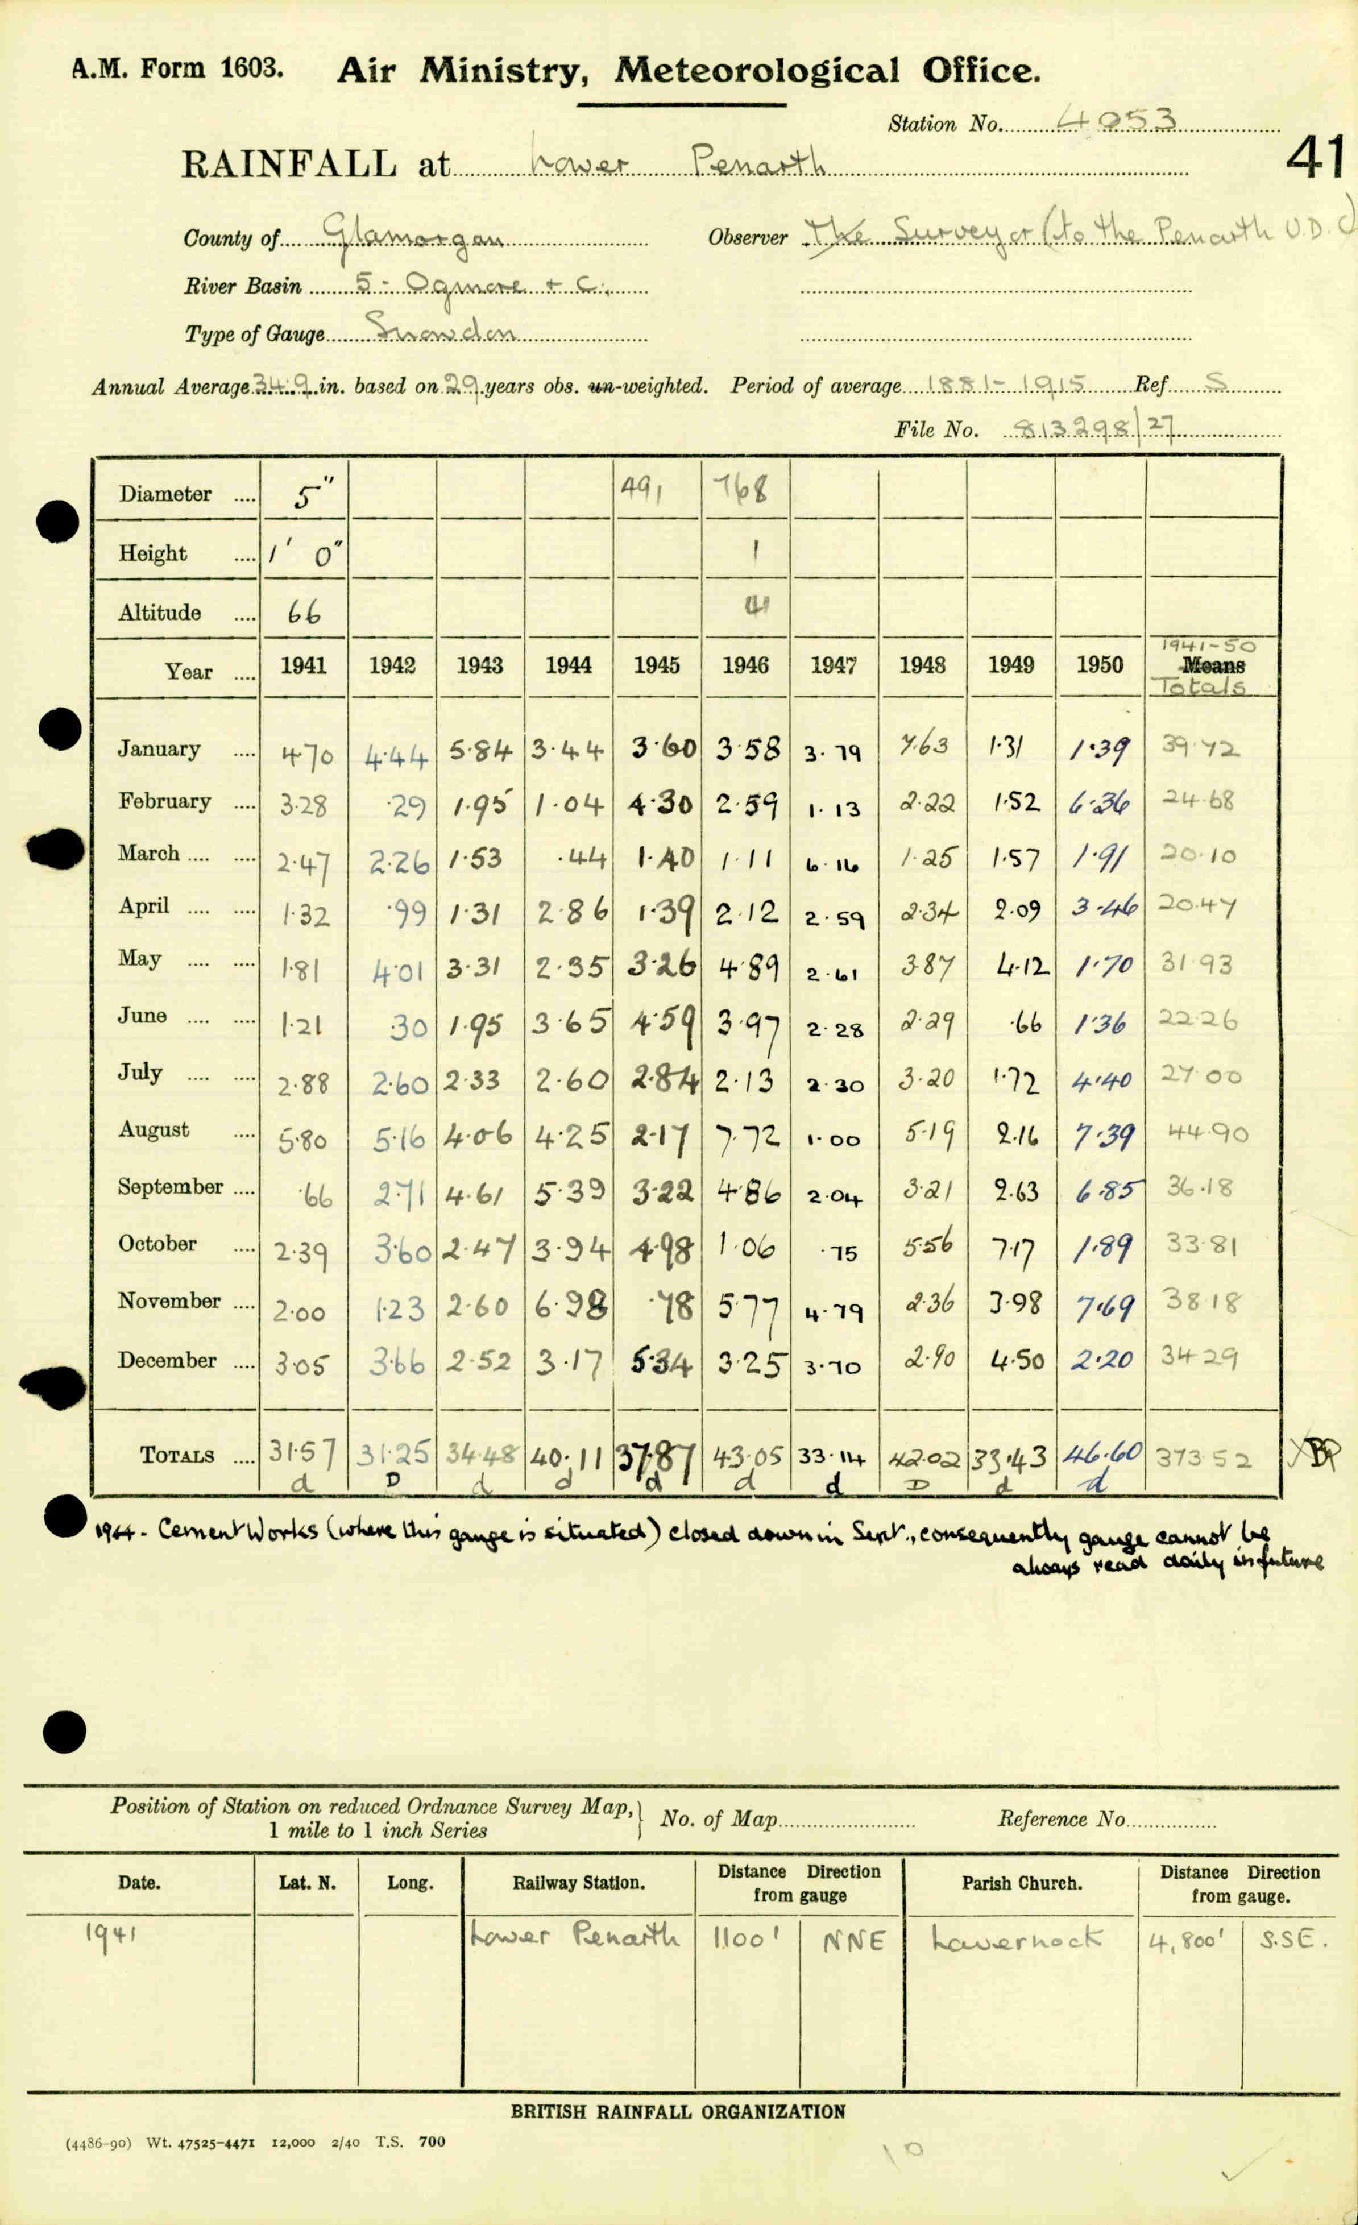 A.M. Form 1603. Air Ministry, Meteorological Office.
Station No. 4053
41
RAINFALL at Lower Penarth
County of Glamorgan Observer The Surveyor (to the Penarth U.D.C)
River Basin 5 - Ogmore + C.
Type of Gauge Snowdon
Annual Average 34.9 in. based on 29 years obs. un-weighted. Period of average 1881-1915 Ref S
File No. 813298/27
Diameter .... 5" 491 768
Height .... 1' 0" 1
Altitude .... 66 41
1941-50
Year .... 1941 1942 1943 1944 1945 1946 1947 1948 1949 1950 Means
Totals
January .... 4.70 4.44 5.84 3.44 3.60 3.58 3.79 7.63 1.31 1.39 39.72
February .... 3.28 .29 1.95 1.04 4.30 2.59 1.13 2.22 1.52 6.36 24.68
March .... .... 2.47 2.26 1.53 .44 1.40 1.11 6.16 1.25 1.57 1.91 20.10
April .... .... 1.32 .99 1.31 2.86 1.39 2.12 2.59 2.34 2.09 3.46 20.47
May .... .... 1.81 4.01 3.31 2.35 3.26 4.89 2.61 3.87 4.12 1.70 31.93
June .... .... 1.21 30 1.95 3.65 4.59 3.97 2.28 2.29 .66 1.36 22.26
July .... .... 2.88 2.60 2.33 2.60 2.84 2.13 2.30 3.20 1.72 4.40 27.00
August .... 5.80 5.16 4.06 4.25 2.17 7.72 1.00 5.19 2.16 7.39 44.90
September .... .66 2.71 4.61 5.39 3.22 4.86 2.04 3.21 2.63 6.85 36.18
October .... 2.39 3.60 2.47 3.94 4.98 1.06 .75 5.56 7.17 1.89 33.81
November .... 2.00 1.23 2.60 6.98 .78 5.77 4.79 2.36 3.98 7.69 38.18
December .... 3.05 3.66 2.52 3.17 5.34 3.25 3.70 2.90 4.50 2.20 34.29
TOTALS .... 31.57 31.25 34.48 40.11 37.87 43.05 33.14 42.02 33.43 46.60 373.52
d D d d d d d D d d
1944 - Cement Works (where this gauge is situated) closed down in Sept., consequently gauge cannot be
always read daily in future
Position of Station on reduced Ordnance Survey Map, } No. of Map Reference No.
1 mile to 1 inch Series
Date. Lat. N. Long. Railway Station. Distance Direction from gauge Parish Church. Distance Direction from gauge.
1941 Lower Penarth 1100' NNE Lavernock 4,800' S.SE.
BRITISH RAINFALL ORGANIZATION
(4486-90) Wt. 47525-4471 12,000 2/40 T.S. 700
10